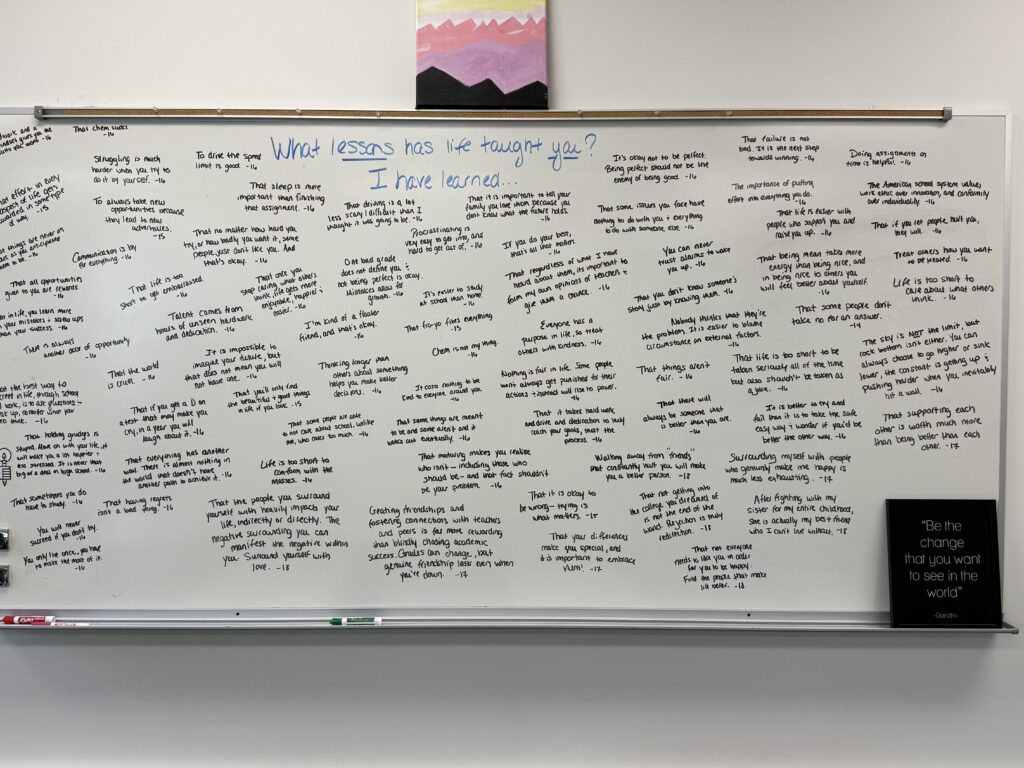 What lessons has life taught you?
I have learned...
That chem sucks
-16
Struggling is much
harder when you try to
do it by yourself. -16
To drive the speed
limit is good. -16
That sleep is more
important than finishing
that assignment. -16
It's okay not to be perfect.
Being perfect should not be the
enemy of being good. -16
That failure is not
bad. It is the next step
towards winning. -16
Doing assignments on
time is helpful. -16
To always take new
opportunities because
they lead to new
adventures.
-15
That driving is a lot
less scary/difficult than I
thought it was going to be. -16
That it is important to tell your
family you love them because you
don't know what the future holds.
-16
That some issues you face have
nothing to do with you & everything
to do with someone else. -16
The importance of putting
effort into everything you do.
-16
The American school system values
work ethic over innovation, and conformity
over individuality. -16
That life is easier with
people who support you and
raise you up. -16
That if you let people hurt you,
they will. -16
Communication is by
for everything. -16
That no matter how hard you
try, or how badly you want it, some
people just don't like you. And
that's okay. -16
Procrastinating is
very easy to get into, and
hard to get out of. -16
If you do your best,
that's all that matters.
-16
You can never
trust alarms to wake
you up. -16
That being mean takes more
energy than being nice, and
in being nice to others you
will feel better about yourself.
-16
Treat others how you want
to be treated. -16
That all opportunities
given to you are rewards
-16
That life is too
short to get embarrassed.
-16
That once you
stop caring what others
think, life gets more
enjoyable, happier &
easier. -16
One bad grade
does not define you &
not being perfect is okay.
Mistakes allow for
growth. -16
It's easier to study
at school than home.
-16
That regardless of what I have
heard about them, it's important to
form my own opinions of teachers &
give them a chance. -16
That you don't know someone's
story just by knowing them. -16
Life is too short to
care about what others
think. -16
There is always
another door of opportunity
-16
Talent comes from
hours of unseen hardwork
and dedication. -16
I'm kind of a floater
friend, and that's okay.
-16
That fro-yo fixes everything.
-15
Everyone has a
purpose in life, so treat
others with kindness. -16
Nobody thinks that they're
the problem. It is easier to blame
circumstance on external factors. -16
That some people don't
take no for an answer.
-14
The sky is NOT the limit, but
rock bottom isn't either. You can
always choose to go higher or sink
lower, the constant is getting up &
pushing harder when you inevitably
hit a wall. -16
That the world
is cruel. -16
It is impossible to
imagine your future, but
that does not mean you will
not have one. -16
Thinking longer than
others about something
helps you make better
decisions. -16
Chem is not my thing.
-16
Nothing is fair in life. Some people
won't always get punished for their
actions & instead will rise to power.
-16
That things aren't
fair. -16
That life is too short to be
taken seriously all of the time
but also shouldn't be taken as
a joke. -16
That you'll only find
the beautiful & good things
in life if you look. -15
It costs nothing to be
kind to everyone around you.
-16
That if you get a D on
a test that may make you
cry, in a year you will
laugh about it. -16
That some people are able
to not care about school, unlike
me, who cares too much. -16
That some things are meant
to be and some aren't and it
works out eventually. -16
That it takes hard work
and drive, and dedication to truly
reach your goals, trust the
process. -16
That there will
always be someone that
is better than you are.
-16
It is better to try and
fail than it is to take the safe
easy way & wonder if you'd be
better the other way. -16
That supporting each
other is worth much more
than being better than each
other. -17
That holding grudges is
stupid. Move on with your life, it
will make you a lot happier &
less stressed. It is never that
big of a deal in high school. -16
That everything has another
way. There is almost nothing in
the world that doesn't have
another path to achieve it. -16
Life is too short to
conform with the
masses. -16
That maturing makes you realize
who isn't - including those who
should be - and that fact shouldn't
be your problem. -16
Walking away from "friends"
that constantly hurt you will make
you a better person. -18
Surrounding myself with people
who genuinely make me happy is
much less exhausting. -17
That sometimes you do
have to study. -16
That having regrets
isn't a bad thing. -16
That the people you surround
yourself with heavily impacts your
life, indirectly or directly. The
negative surrounding you can
manifest the negative within
you. Surround yourself with
love. -18
Creating friendships and
fostering connections with teachers
and peers is far more rewarding
than blindly chasing academic
success. Grades can change, but
genuine friendship lasts even when
you're down. -17
That it is okay to
be wrong - trying is
what matters. -15
That not getting into
the college you dreamed of
is not the end of the
world. Rejection is truly
redirection. -18
After fighting with my
sister for my entire childhood,
she is actually my best friend
who I can't live without. -18
You will never
succeed if you don't try.
-16
You only live once, you have
to make the most of it.
-16
That your differences
make you special, and
it is important to embrace
them! -17
That not everyone
needs to like you in order
for you to be happy.
Find the people that make
life better. -18
"Be the
change
that you want
to see in the
world"
-Gandhi
EXPO